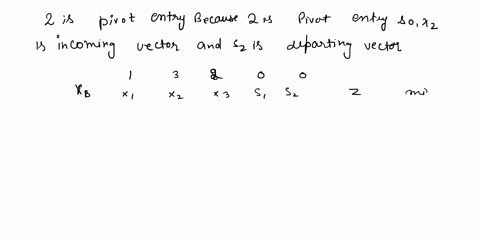 2 is pivot entry Because 2 is Pivot entry so, x2
is incoming vector and S2 is departing vector
1 3 8 0 0
XB x1 x2 x3 S1 S2 Z mi